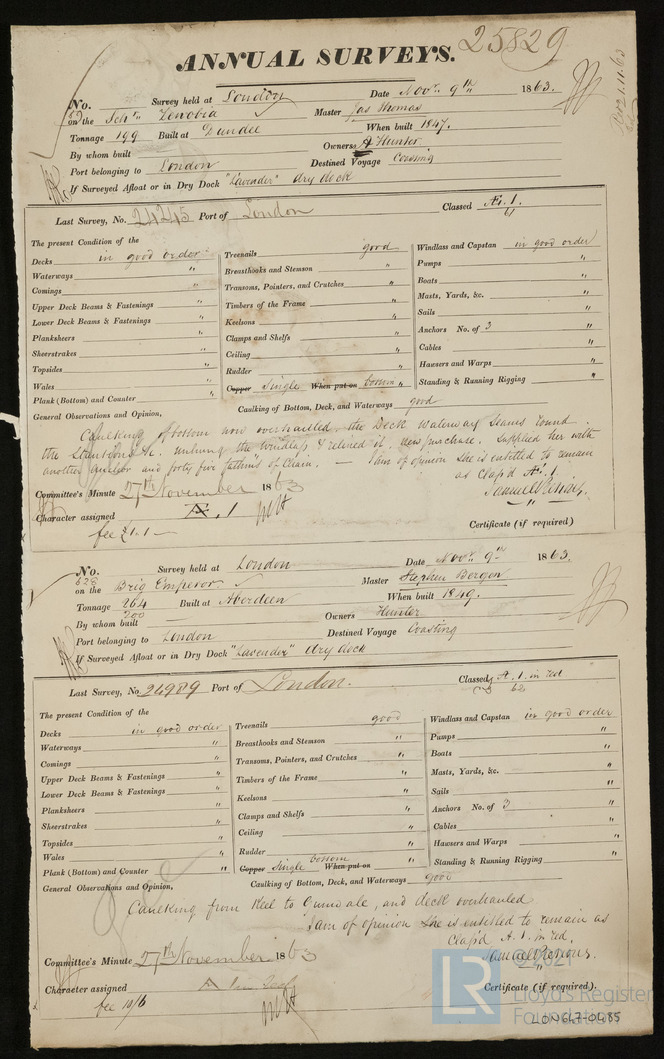 ANNUAL SURVEYS. 25829
No. Survey held at London Date Novr. 9th 1863.
on the Schr Zenobia Master Jas Thomas
Tonnage 199 Built at Dundee When built 1847.
By whom built Owners A Hunter
Port belonging to London Destined Voyage Coasting
If Surveyed Afloat or in Dry Dock "Lavender" dry dock
Last Survey, No. 24245 Port of London Classed Æ. 1. 61
The present Condition of the
Decks in good order
Waterways "
Comings "
Upper Deck Beams & Fastenings "
Lower Deck Beams & Fastenings "
Planksheers "
Sheerstrakes "
Topsides "
Wales "
Plank (Bottom) and Counter "
Treenails good
Breasthooks and Stemson "
Transoms, Pointers, and Crutches "
Timbers of the Frame "
Keelsons "
Clamps and Shelfs "
Ceiling "
Rudder "
Copper Single When put on bottom "
Windlass and Capstan in good order
Pumps "
Boats "
Masts, Yards, &c. "
Sails "
Anchors No. of 3 "
Cables "
Hawsers and Warps "
Standing & Running Rigging "
Caulking of Bottom, Deck, and Waterways good
General Observations and Opinion,
Caulking of bottom now overhauled. the Deck Waterway Seams round
the Stanchions &c. unhung the windlass & refined it, new purchase. Supplied her with
another anchor and forty five fathms of Chain. — I am of opinion she is entitled to remain
as Class'd Æ. 1.
Samuel Pretious.
Committee's Minute 27th November 1863
Character assigned Æ. 1
Certificate (if required)
fee £1.1 —
No. Survey held at London Date Novr. 9th 1863.
628
on the Brig Emperor Master Stephen Bergen
Tonnage 264 Built at Aberdeen When built 1849.
200
By whom built — Owners Hunter
Port belonging to London Destined Voyage Coasting
If Surveyed Afloat or in Dry Dock "Lavender" dry dock
Last Survey, No. 24989 Port of London. Classed A. 1. in red 62
The present Condition of the
Decks in good order
Waterways "
Comings "
Upper Deck Beams & Fastenings "
Lower Deck Beams & Fastenings "
Planksheers "
Sheerstrakes "
Topsides "
Wales "
Plank (Bottom) and Counter "
Treenails good
Breasthooks and Stemson "
Transoms, Pointers, and Crutches "
Timbers of the Frame "
Keelsons "
Clamps and Shelfs "
Ceiling "
Rudder "
Copper Single bottom When put on
Windlass and Capstan in good order
Pumps "
Boats "
Masts, Yards, &c. "
Sails "
Anchors No. of 3 "
Cables "
Hawsers and Warps "
Standing & Running Rigging "
Caulking of Bottom, Deck, and Waterways good
General Observations and Opinion,
Caulking from Keel to Gunwale, and deck overhauled
I am of opinion she is entitled to remain as
Class'd A. 1. in red.
Samuel Pretious.
Committee's Minute 27th November 1863
Character assigned A in Red
Certificate (if required).
fee 10/6
LR © 2021
Lloyd's Register
Foundation
LON647-0485